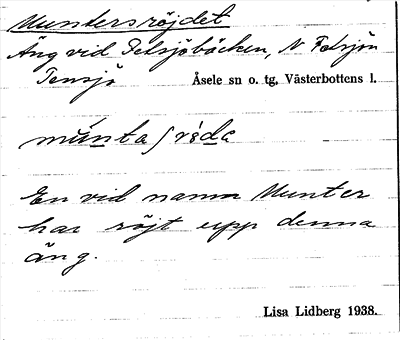 Muntersröjdet
Äng vid Petsjöbäcken, N Petsjön
Tensjö Åsele sn o. tg, Västerbottens l.
múnta/rö̀dɛ
En vid namn Munter
har röjt upp denna
äng.
Lisa Lidberg 1938.